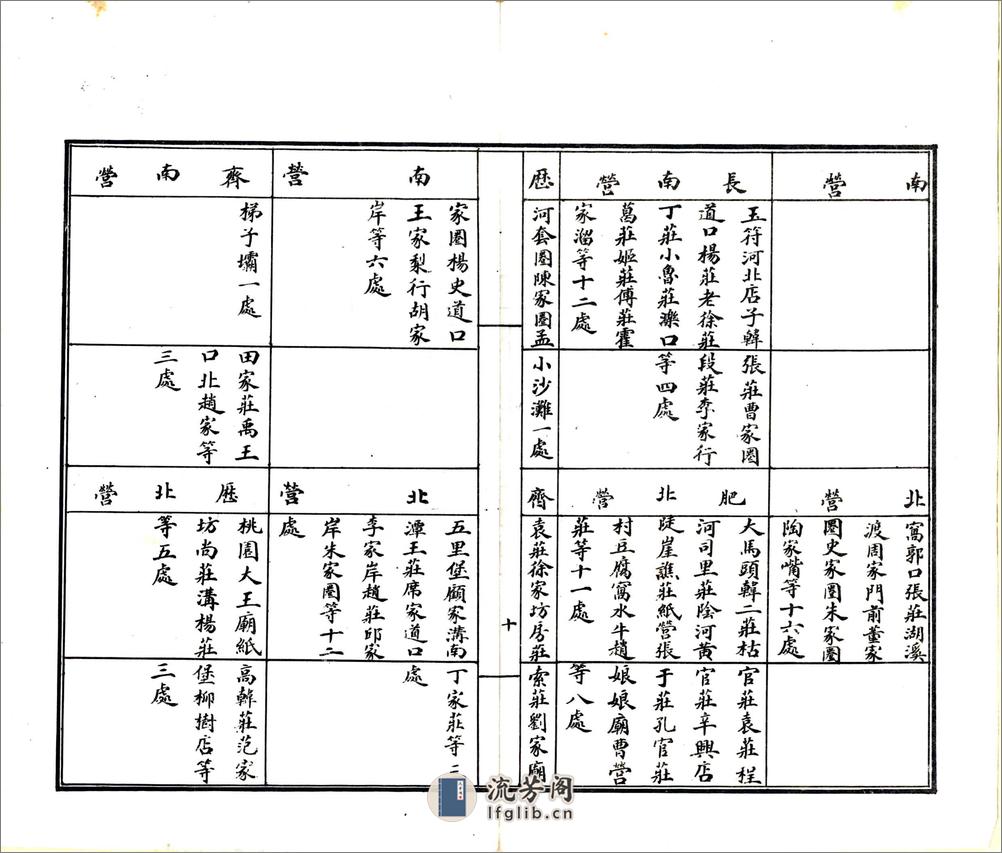 南營
北營
窩郭口張莊湖溪
渡周家門前董家
圈史家圈朱家圈
陶家嘴等十六處
長南營
玉符河北店子韓
道口楊莊老徐莊
丁莊小魯莊濼口
萬莊姬莊傅莊霍
家溜等十二處
張莊曹家圈
段莊李家行
等四處
肥北營
大馬頭韓二莊枯
河司里莊陰河黃
陡崖譙莊紙營張
村豆腐窩水牛趙
莊等十一處
官莊袁莊程
官莊辛興店
于莊孔官莊
娘娘廟曹營
等八處
歷
河套圈陳家圈孟
小沙灘一處
齊
袁莊徐家坊房莊
索莊劉家廟
十
南營
家圈楊史道口
王家梨行胡家
岸等六處
北營
五里堡顧家溝南
潭王莊席家道口
李家岸趙莊邱家
岸朱家圈等十二
處
丁家莊等二
處
齊南營
梯子壩一處
田家莊禹王
口北趙家等
三處
歷北營
桃園大王廟紙
坊尚莊溝楊莊
等五處
高韓莊范家
堡柳樹店等
三處
流芳阁
lfglib.cn